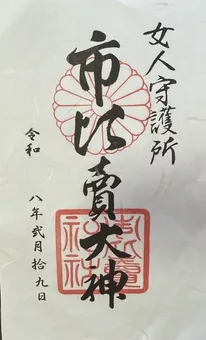 女人守護所
市比賣大神
令和八年弐月拾九日